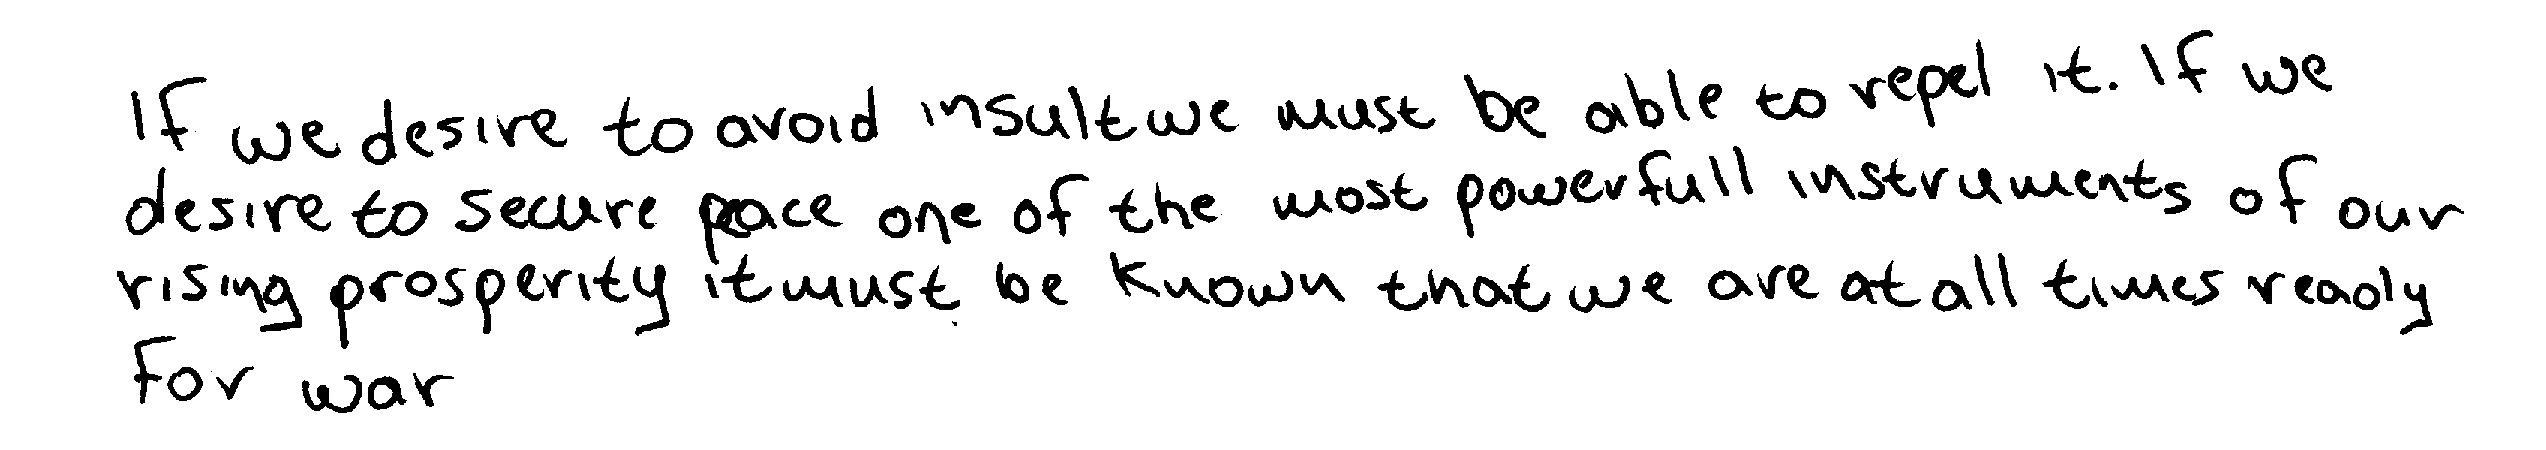 If we desire to avoid insult we must be able to repel it. If we
desire to secure peace one of the most powerfull instruments of our
rising prosperity it must be known that we are at all times ready
for war